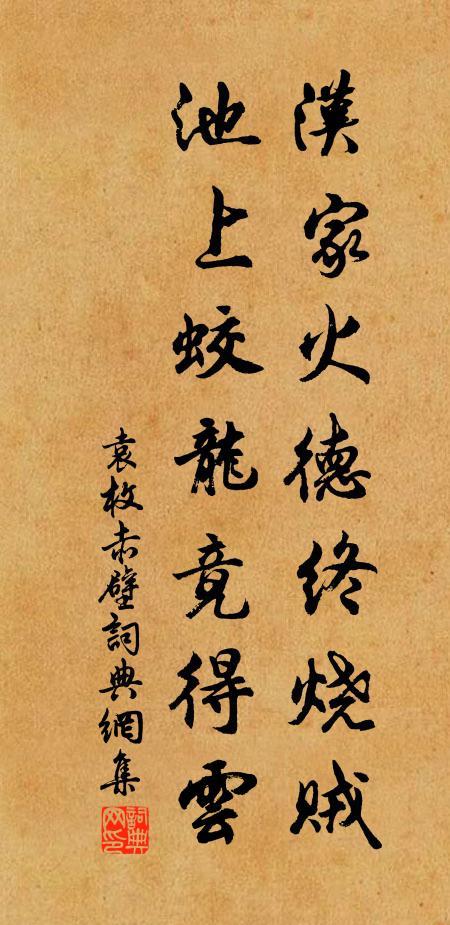 漢家火德终烧贼
池上蛟龍竟得雲
袁枚赤壁詞典網集
詞典网印